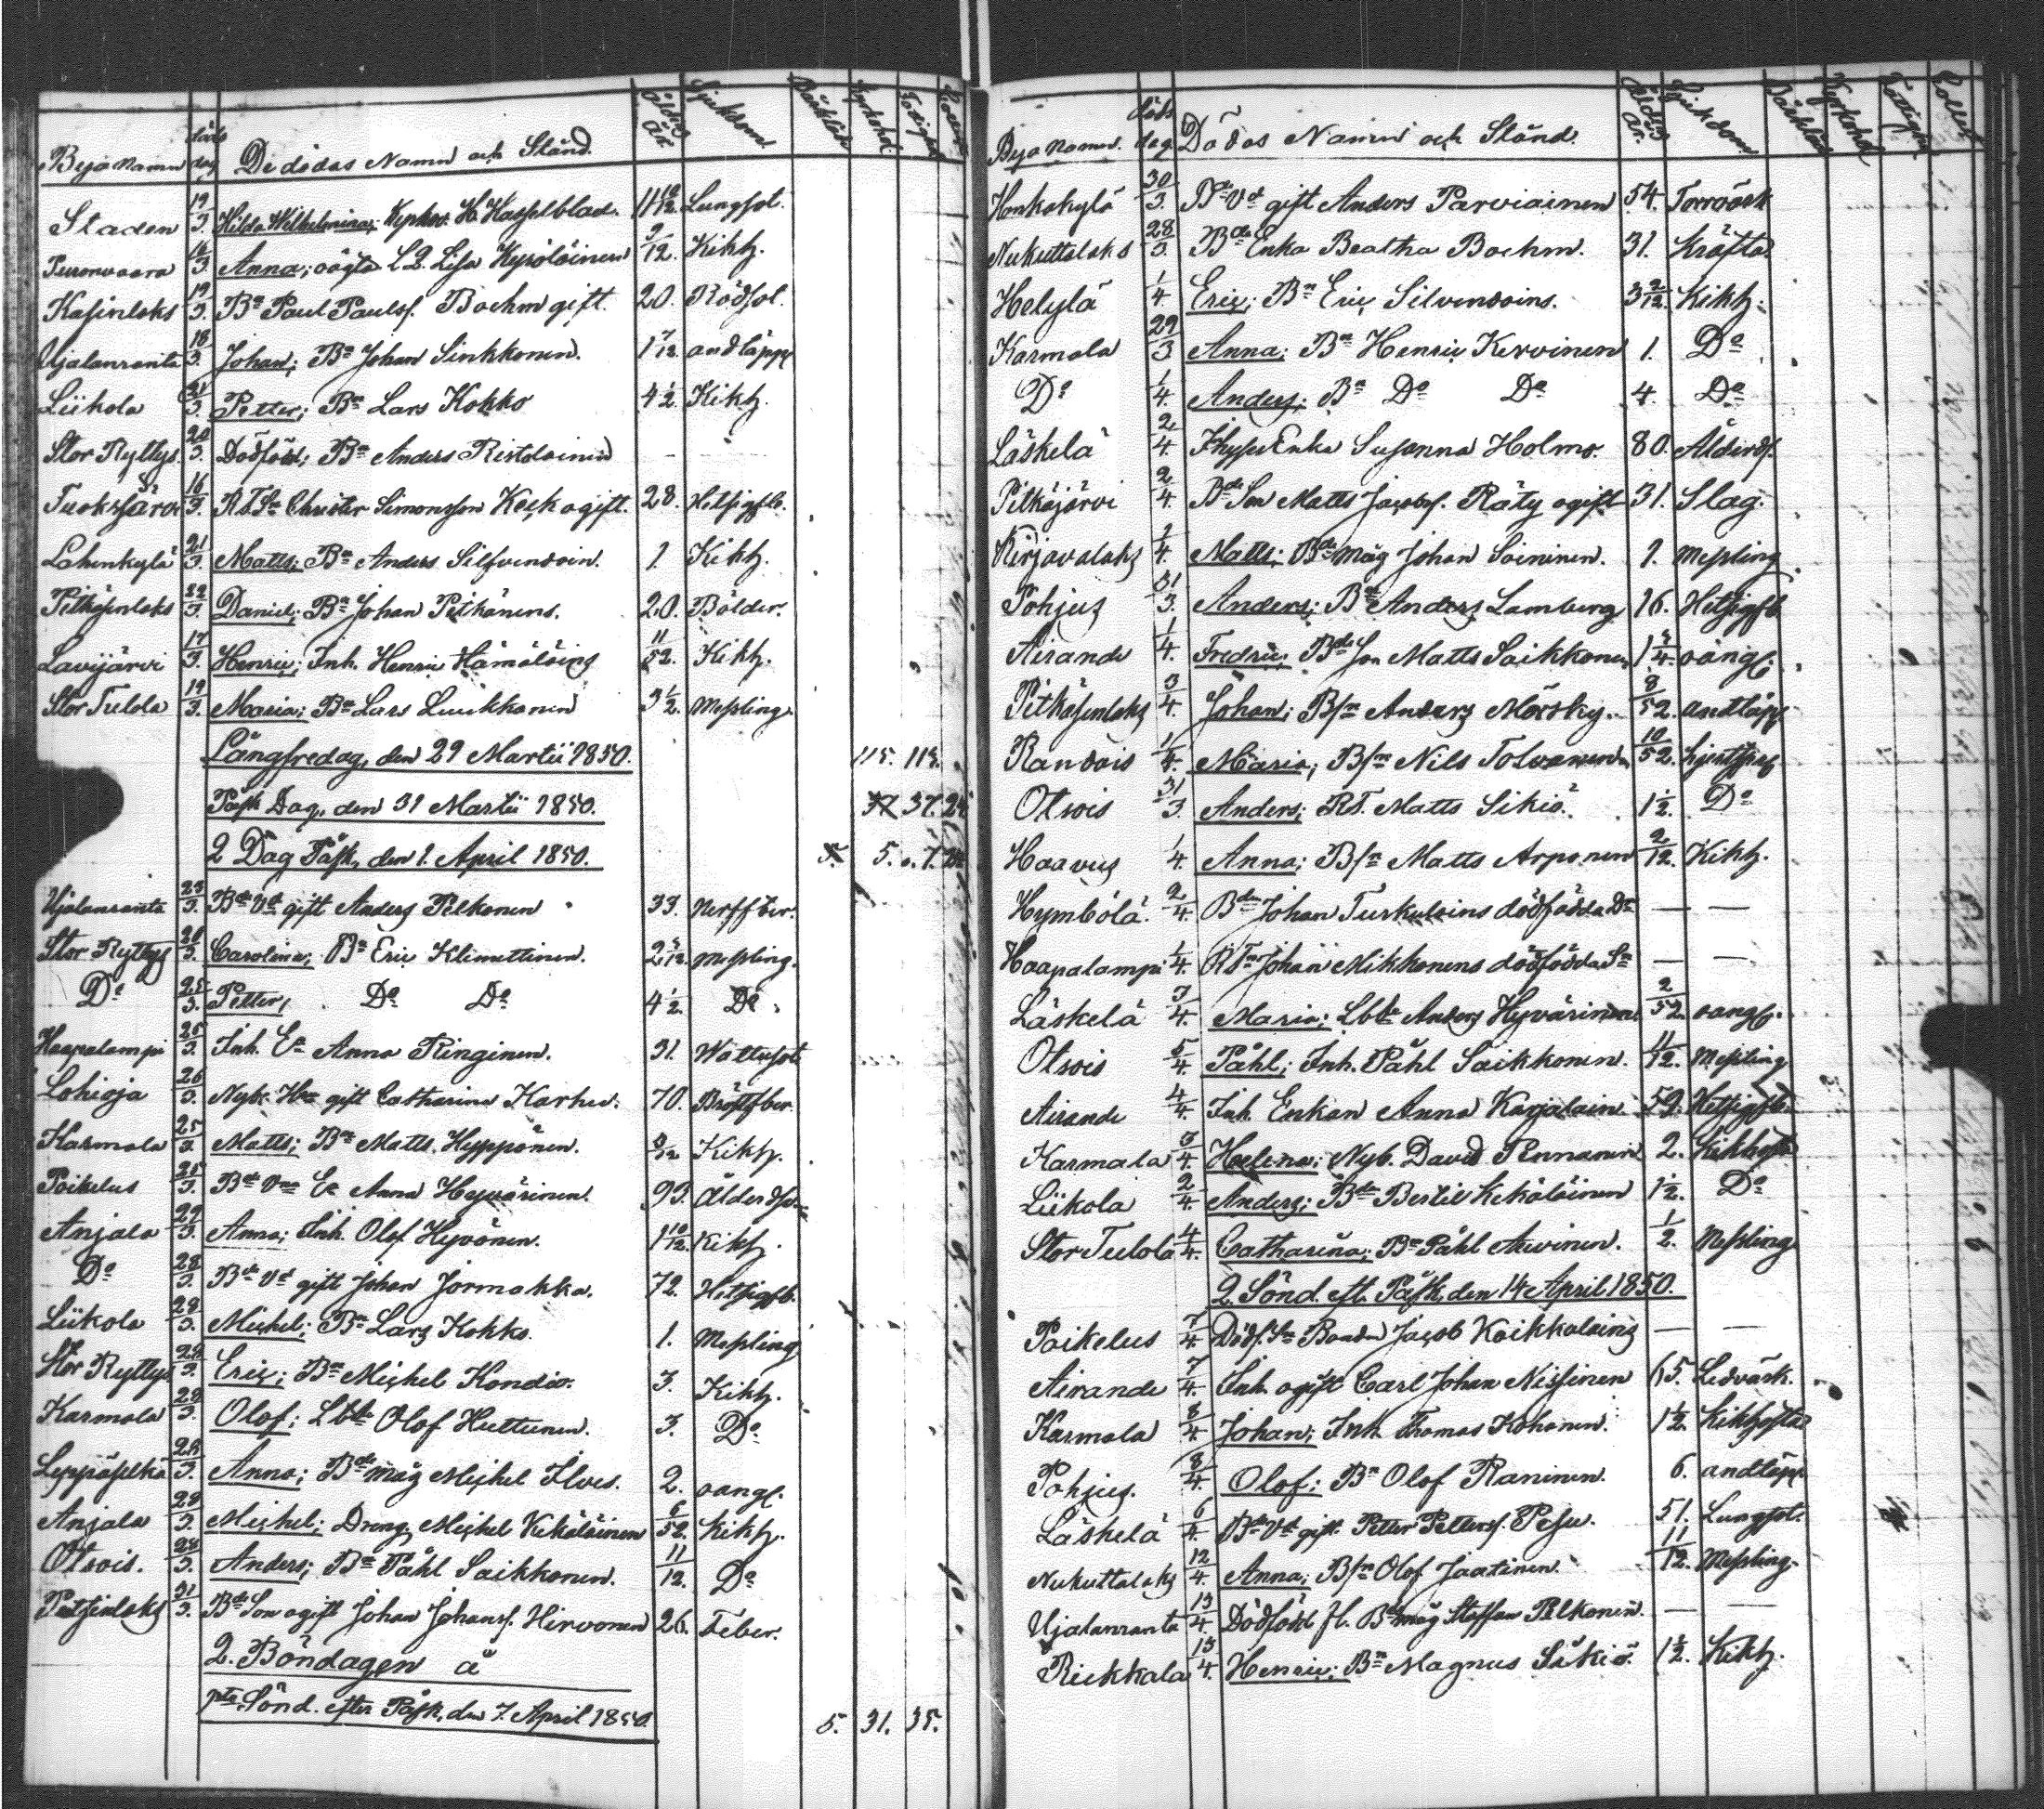 Byanamn döds dag De dödas Namn och Stånd. Ålder År Sjukdom
Staden 19/3. Hilda Wilhelmina; H. Hasselblad. 11 10/12 Lungsot.
16/3. Anna; oägta Lisa Hyvöläinen 9/12. Kikh.
Kasinlaks 19/3. Bn Paul Paulss. Boehm gift. 20. Rödsot.
Ujalanranta 18/3. Johan; Bn Johan Sinkkonen. 1 7/12. andtäppa
Liikola 21/3. Petter; Bn Lars Kokko 4 1/2. Kikh.
Stor Ryttys. 20/3. Dödfödd; Bn Anders Ristolainen — —
16/3. Christer Simonsson ogift. 28. Hetsigfb.
Lahenkylä 21/3. Matts; Bn Anders Silfvendoin. 1. Kikh.
Pitkäsenlaks 22/3. Daniel; Bn Johan Pitkänens. 20. Bölder.
Lavijärvi 17/3. Henric; Inh. Henric Hämäläing 11/52. Kikh.
Stor Tulola 19/3. Maria; Bn Lars Luukkonen 3 1/2. Messling.
Långfredag, den 29 Martii 1850. 115. 115.
Påsk Dag, den 31 Martii 1850. 37. 24
2 Dag Påsk, den 1. April 1850. 5.
Ujalanranta 23/3. Bde Vd gift Anders Pelkonen 33. Nerffeber.
Stor Ryttys 20/3. Carolina; Bn Eric Klimettinen. Messling.
Do 25/3. Petter; Do Do 4 1/2. Do
Haapalampi 25/3. Inh. Ea Anna Ringinen. 31. Wattusot
Lohioja 26/3. Nyb. gift Catharina Karhu. 70. Bröstfber
Karmala 25/3. Matts; Bn Matts Hypponen. Kikh.
Poikelus 25/3. Anna Hyvärinen. 93. Ålderdom
Anjala 29/3. Anna; Inh. Olof Hyvönen. 1 10/12. Kikh.
Do 28/3. Bde Vd gift Johan Jormakka. 72. Hetsigfb.
Liikola 28/3. Michel; Bn Lars Kokko. 1. Messling
Stor Ryttys 28/3. Eric; Bn Michel Kondio. 3. Kikh.
Karmala 28/3. Olof; Olof Huttunen. 3. Do
Leppäselkä 28/3. Anna; Bde måg Michel Ilves. 2. oangf.
Anjala 28/3. Michel; Dreng Michel Kekäläinen 6/52. Kikh.
Otsois. 28/3. Anders; Bn Påhl Saikkonen. 11/12. Do
31/3. Bde Son ogift Johan Johanss. Hirvonen 26. Feber.
2. Böndagen å
1sta Sönd. efter Påsk, den 7. April 1850. 5. 31. 35.
Bya namn. döds dag. Dödas Namn och Stånd. Ålder År. Sjukdom
Honkakylä 30/3. Bde Vd gift Anders Parviainen 54. Torrvärk
Nukuttalaks 28/3. Bde Enka Beatha Boehm. 31. Kräfta
Helylä 1/4. Eric; Bn Eric Silvendoins. 3 2/12. Kikh.
Karmala 29/3 Anna; Bn Henric Kervinen 1. Do
Do 1/4. Anders; Bn Do Do 4. Do
Läskelä 2/4. Enka Susanna Holmo. 80. Ålderds.
Pitkäjärvi 2/4. Bde Son Matts Jacobss. Räty ogift 31. Slag.
Kirjavalaks 1/4. Matts; Bde måg Johan Soininen. 1. Messling
Pohjus 31/3. Anders; Bn Anders Lamberg 16. Hetsigfb
Airande 1/4. Fredric; Bde Son Matts Saikkonen oangf.
Pitkäsenlaks 3/4. Johan; Bsn Anders Mörsky. 8/52. andtäpp
Randois 1/4. Maria; Bsn Nils Tolvanen 10/52.
Otsois 31/3. Anders; RT. Matts Sikiö. 1 1/2. Do
Haavus 1/4. Anna; Bsn Matts Arponen 2/12. Kikh.
Hymbölä. 2/4. Bdn Johan Turkulains dödfödda Dr — —
Haapalampi 1/4. Johan Mikkonens dödfödda Sn — —
Läskelä 3/4. Maria; Anders Hyvärinen. 2/52. oangf.
Otsois 5/4. Påhl; Inh. Påhl Saikkonen. 11/12. Messling
Airande 4/4. Inh. Enkan Anna Karjalain 59. Hetsigfb.
Karmala 3/4. Helena; Nyb. David Pennanen 2. Kikhosta
Liikola 2/4. Anders; Bde Bertil Kekäläinen 1 1/2. Do
Stor Tulola 4/4. Catharina; Bn Påhl Arvinen. 1/2. Messling
2. Sönd. eft. Påsk, den 14 April 1850.
Poikelus 7/4. Dödf. Sn Bonden Jacob Koikkalaing — —
Airande 7/4. Inh. ogift Carl Johan Nissinen 65. Ledvärk.
Karmala 8/4. Johan; Inh. Thomas Kohonen. 1 1/2. Kikhosta
Pohjus. 8/4. Olof; Bn Olof Raninen. 6. andtäpp
Läskelä 6/4. Bde Vd gift. Petter Petterss. Pesu. 51. Lungsot.
Nukuttalaks 12/4. Anna; Bsn Olof Jaatinen. 11/12. Messling.
Ujalanranta 13/4. Dödfödd fl. Bde måg Staffan Pelkonen. — —
Riekkala 13/4. Henric; Bn Magnus Sikiö. 1 1/2. Kikh.